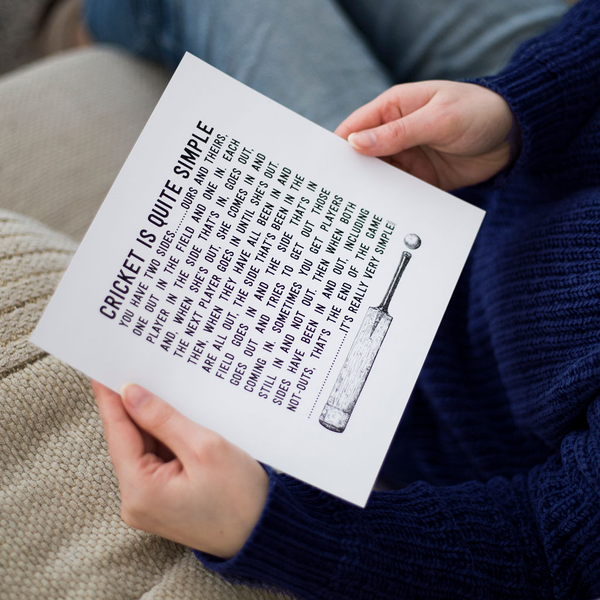 CRICKET IS QUITE SIMPLE
YOU HAVE TWO SIDES.......OURS AND THEIRS,
ONE OUT IN THE FIELD AND ONE IN. EACH
PLAYER IN THE SIDE THAT'S IN, GOES OUT,
AND, WHEN SHE'S OUT, SHE COMES IN AND
THE NEXT PLAYER GOES IN UNTIL SHE'S OUT.
THEN, WHEN THEY HAVE ALL BEEN IN AND
ARE ALL OUT, THE SIDE THAT'S BEEN IN THE
FIELD GOES IN AND THE SIDE THAT'S IN
GOES OUT AND TRIES TO GET OUT THOSE
COMING IN. SOMETIMES YOU GET PLAYERS
STILL IN AND NOT OUT. THEN WHEN BOTH
SIDES HAVE BEEN IN AND OUT, INCLUDING
NOT-OUTS, THAT'S THE END OF THE GAME
....................IT'S REALLY VERY SIMPLE!